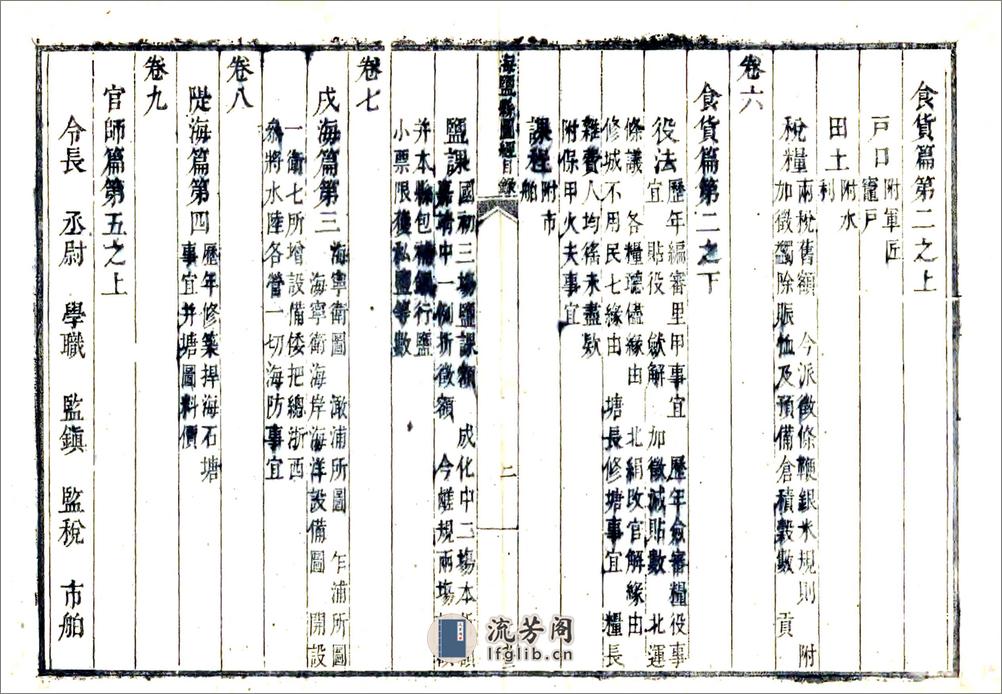 食貨篇第二之上
戸口附軍匠
竈戸
田土附水
利
稅糧兩稅舊額 今派徵條鞭銀米規則 附
加徵蠲除賑恤及預備倉積穀數 貢
卷六
食貨篇第二之下
役法歷年編審里甲事宜 歷年僉審糧役事
宜 貼役 解 加徵減貼數 北運
條議 各糧聽儘緣由 北絹改官解緣由
修城不用民七緣由 塘長修塘事宜 糧長
雜費人均徭未盡欵
附保甲火夫事宜
課程附市
舶
海鹽縣圖經目錄
二
鹽課國初三場鹽課額 成化中二場本折額
嘉靖中一例折徵額 今鹺規兩場
并本縣包補銀行鹽
小票限獲私鹽等數
卷七
戍海篇第三 海寧衛圖 澉浦所圖 乍浦所圖
海寧衛海岸海洋設備圖 開設
一衛七所增設備倭把總浙西
叅將水陸各營一切海防事宜
卷八
隄海篇第四歷年修築捍海石塘
事宜并塘圖料價
卷九
官師篇第五之上
令長 丞尉 學職 監鎮 監稅 市舶
流芳阁
lfglib.cn